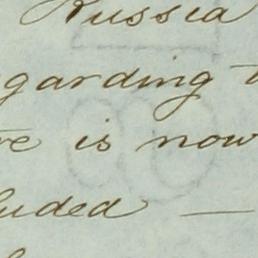 Russia
garding t
re is now
luded —